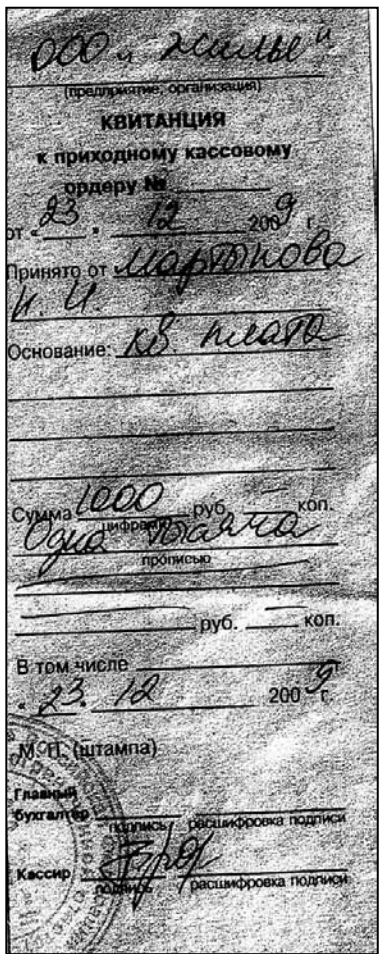 ООО "Жилье"
(предприятие, организация)
КВИТАНЦИЯ
к приходному кассовому
ордеру №
от "23" 12 2009 г.
Принято от Мартынова
И. И.
Основание: кв. плата
Сумма 1000 руб. — коп.
цифрами
Одна тысяча
прописью
руб. коп.
В том числе
"23" 12 2009 г.
М. П. (штампа)
Главный
бухгалтер
подпись расшифровка подписи
Кассир
подпись расшифровка подписи